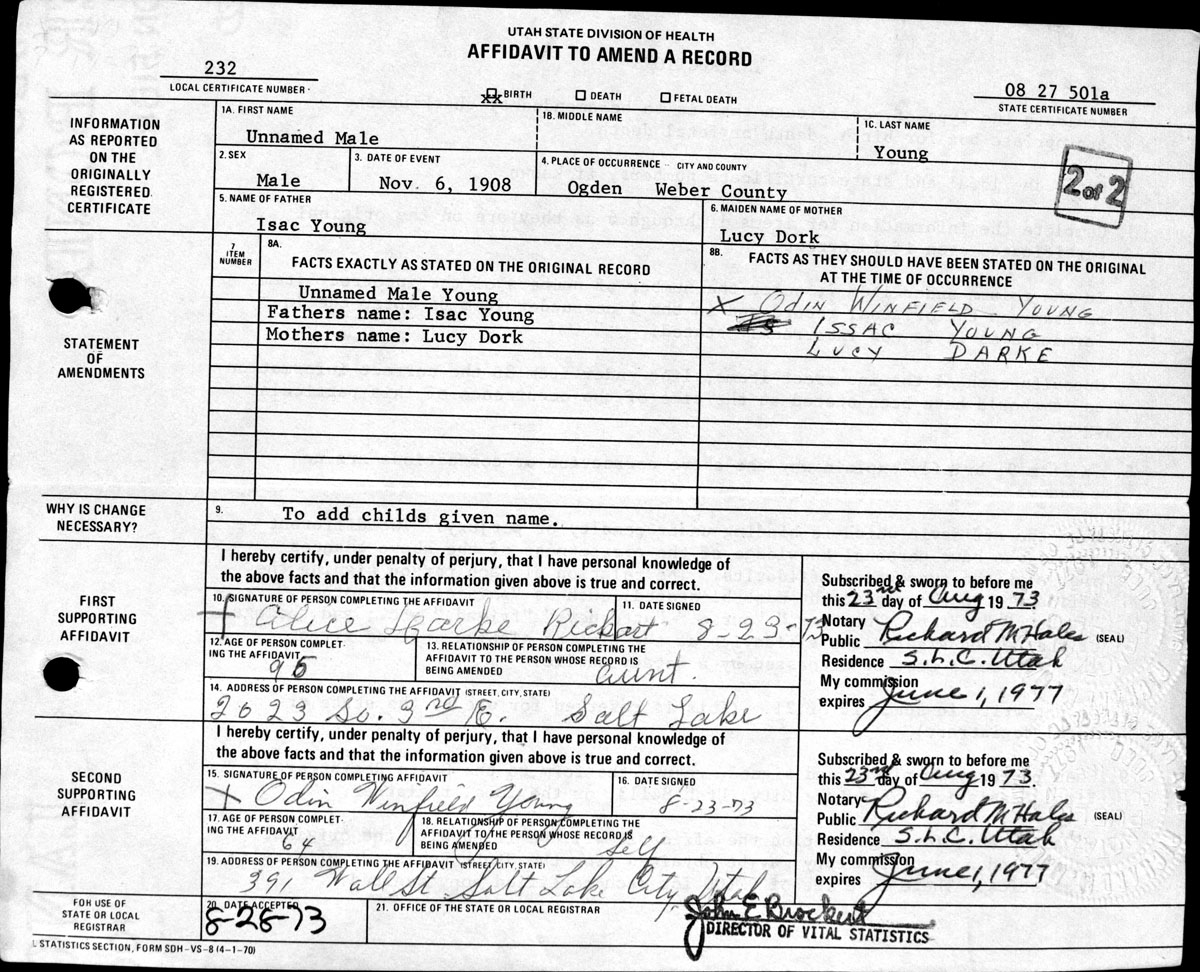 UTAH STATE DIVISION OF HEALTH
AFFIDAVIT TO AMEND A RECORD
232
LOCAL CERTIFICATE NUMBER
XX BIRTH DEATH FETAL DEATH
08 27 501a
STATE CERTIFICATE NUMBER
INFORMATION AS REPORTED ON THE ORIGINALLY REGISTERED CERTIFICATE
1A. FIRST NAME 1B. MIDDLE NAME 1C. LAST NAME
Unnamed Male Young
2. SEX 3. DATE OF EVENT 4. PLACE OF OCCURRENCE - CITY AND COUNTY
Male Nov. 6, 1908 Ogden Weber County
2 of 2
5. NAME OF FATHER 6. MAIDEN NAME OF MOTHER
Isac Young Lucy Dork
STATEMENT OF AMENDMENTS
7 ITEM NUMBER
8A. FACTS EXACTLY AS STATED ON THE ORIGINAL RECORD
8B. FACTS AS THEY SHOULD HAVE BEEN STATED ON THE ORIGINAL
AT THE TIME OF OCCURRENCE
Unnamed Male Young X ODIN WINFIELD YOUNG
Fathers name: Isac Young ISSAC YOUNG
Mothers name: Lucy Dork LUCY DARKE
WHY IS CHANGE NECESSARY?
9. To add childs given name.
FIRST SUPPORTING AFFIDAVIT
I hereby certify, under penalty of perjury, that I have personal knowledge of
the above facts and that the information given above is true and correct.
10. SIGNATURE OF PERSON COMPLETING THE AFFIDAVIT 11. DATE SIGNED
Alice Rickart 8-23-73
12. AGE OF PERSON COMPLETING THE AFFIDAVIT
95
13. RELATIONSHIP OF PERSON COMPLETING THE AFFIDAVIT TO THE PERSON WHOSE RECORD IS BEING AMENDED
aunt.
14. ADDRESS OF PERSON COMPLETING THE AFFIDAVIT (STREET, CITY, STATE)
2023 So. 3rd E. Salt Lake
Subscribed & sworn to before me
this 23rd day of Aug 1973
Notary
Public Richard M Hales (SEAL)
Residence S.L.C. Utah
My commission
expires June 1, 1977
SECOND SUPPORTING AFFIDAVIT
I hereby certify, under penalty of perjury, that I have personal knowledge of
the above facts and that the information given above is true and correct.
15. SIGNATURE OF PERSON COMPLETING AFFIDAVIT 16. DATE SIGNED
Odin Winfield Young 8-23-73
17. AGE OF PERSON COMPLETING THE AFFIDAVIT
64
18. RELATIONSHIP OF PERSON COMPLETING THE AFFIDAVIT TO THE PERSON WHOSE RECORD IS BEING AMENDED
Self
19. ADDRESS OF PERSON COMPLETING THE AFFIDAVIT (STREET, CITY, STATE)
391 Wall St Salt Lake City, Utah
Subscribed & sworn to before me
this 23rd day of Aug 1973
Notary
Public Richard M Hales (SEAL)
Residence S.L.C. Utah
My commission
expires June 1, 1977
FOR USE OF STATE OR LOCAL REGISTRAR
20. DATE ACCEPTED 21. OFFICE OF THE STATE OR LOCAL REGISTRAR
8-28-73 John E Brockert
DIRECTOR OF VITAL STATISTICS
L STATISTICS SECTION, FORM SDH-VS-8 (4-1-70)